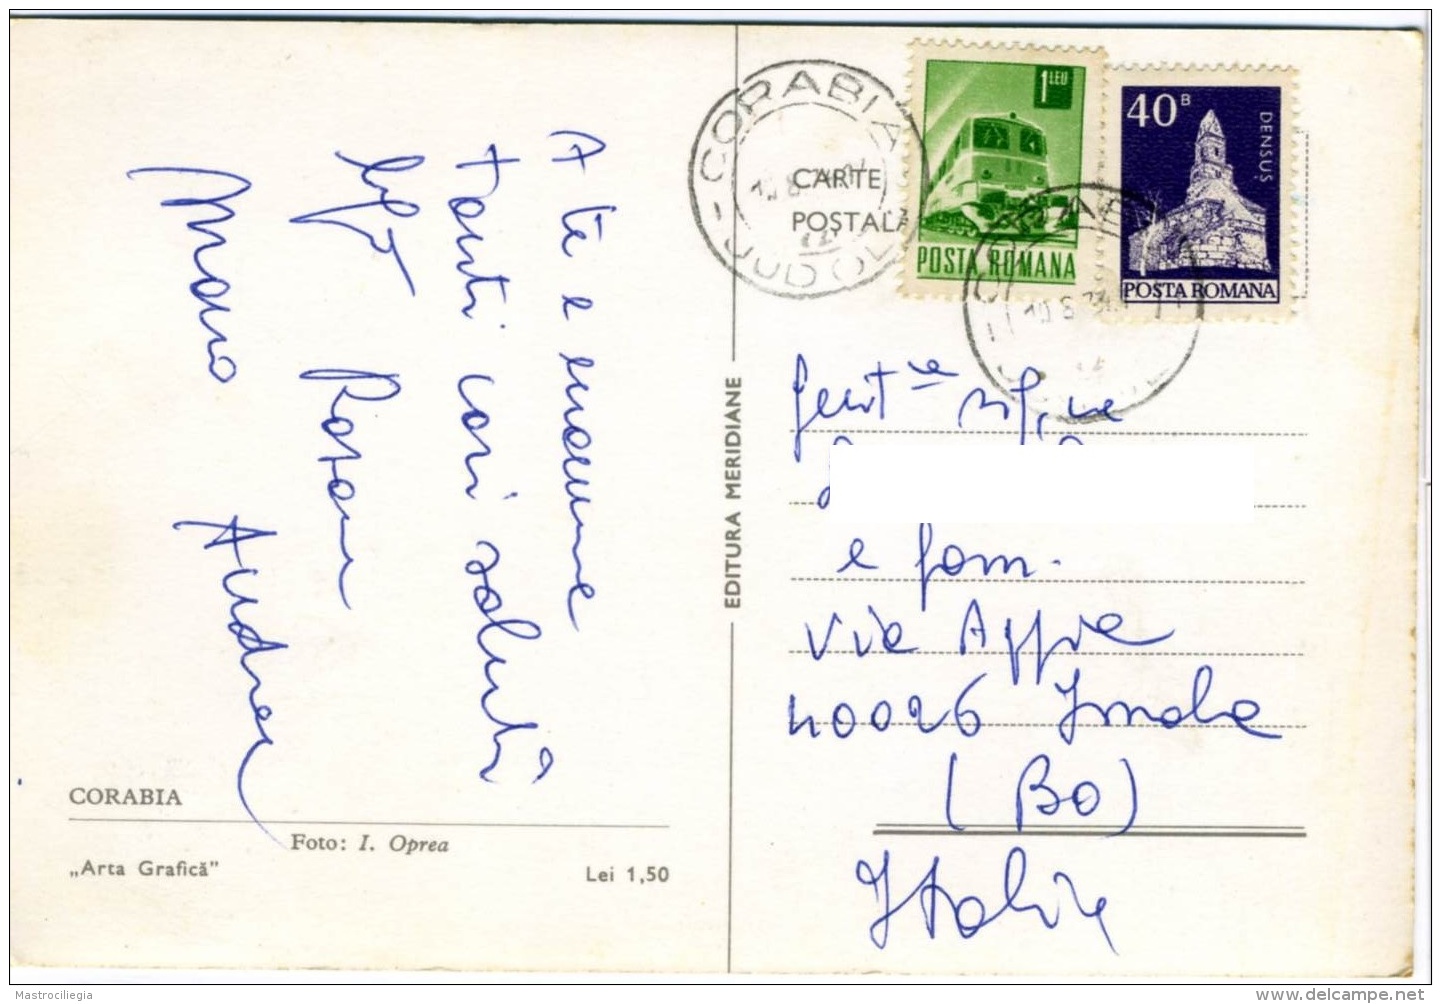 CORABIA
JUD OLT
CARTE
POȘTALĂ
1 LEU
POSTA ROMANA
40 B
DENSUȘ
POSTA ROMANA
A te e mamme
tanti cari saluti
Mario
Andrea
EDITURA MERIDIANE
Gent.ma sig.na
e fam.
Via Appia
40026 Imola
(BO)
Italia
CORABIA
Foto: I. Oprea
„Arta Grafică”
Lei 1,50
Mastrociliegia
www.delcampe.net